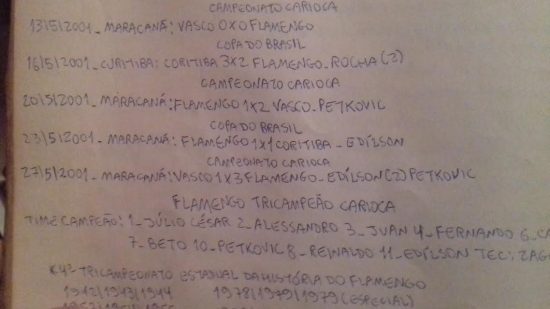 CAMPEONATO CARIOCA
13|5|2001_ MARACANÃ: VASCO 0X0 FLAMENGO
COPA DO BRASIL
16|5|2001_ CURITIBA: CORITIBA 3X2 FLAMENGO_ ROCHA (2)
CAMPEONATO CARIOCA
20|5|2001_ MARACANÃ: FLAMENGO 1X2 VASCO_ PETKOVIC
COPA DO BRASIL
23|5|2001_ MARACANÃ: FLAMENGO 1X1 CORITIBA_ EDÍLSON
CAMPEONATO CARIOCA
27|5|2001_ MARACANÃ: VASCO 1X3 FLAMENGO_ EDÍLSON (2) PETKOVIC
FLAMENGO TRICAMPEÃO CARIOCA
TIME CAMPEÃO: 1_ JÚLIO CÉSAR 2_ ALESSANDRO 3_ JUAN 4_ FERNANDO 6_
7_ BETO 10_ PETKOVIC 8_ REINALDO 11_ EDÍLSON TEC:
TRICAMPEONATO ESTADUAL DA HISTÓRIA DO FLAMENGO
1942|1943|1944 1978|1979|1979 (ESPECIAL)